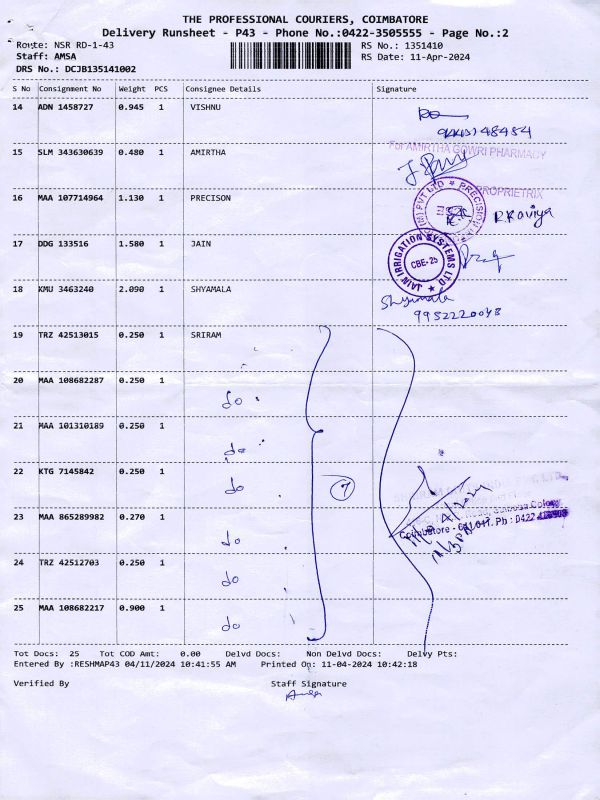 THE PROFESSIONAL COURIERS, COIMBATORE
Delivery Runsheet - P43 - Phone No.:0422-3505555 - Page No.:2
Route: NSR RD-1-43
Staff: AMSA
DRS No.: DCJB135141002
RS No.: 1351410
RS Date: 11-Apr-2024
S No Consignment No Weight PCS Consignee Details Signature
14 ADN 1458727 0.945 1 VISHNU
15 SLM 343630639 0.480 1 AMIRTHA
For AMIRTHA GOWRI PHARMACY
PROPRIETRIX
16 MAA 107714964 1.130 1 PRECISON
R.Kaviya
17 DDG 133516 1.580 1 JAIN
JAIN IRRIGATION SYSTEMS LTD
CBE-25
18 KMU 3463240 2.090 1 SHYAMALA
Shyamala
9952220048
19 TRZ 42513015 0.250 1 SRIRAM
20 MAA 108682287 0.250 1
do
21 MAA 101310189 0.250 1
do
22 KTG 7145842 0.250 1
do
7
23 MAA 865289982 0.270 1
do
Saibaba Colony,
Coimbatore - 641 011. Ph : 0422
24 TRZ 42512703 0.250 1
do
25 MAA 108682217 0.900 1
do
Tot Docs: 25 Tot COD Amt: 0.00 Delvd Docs: Non Delvd Docs: Delvy Pts:
Entered By :RESHMAP43 04/11/2024 10:41:55 AM Printed On: 11-04-2024 10:42:18
Verified By Staff Signature